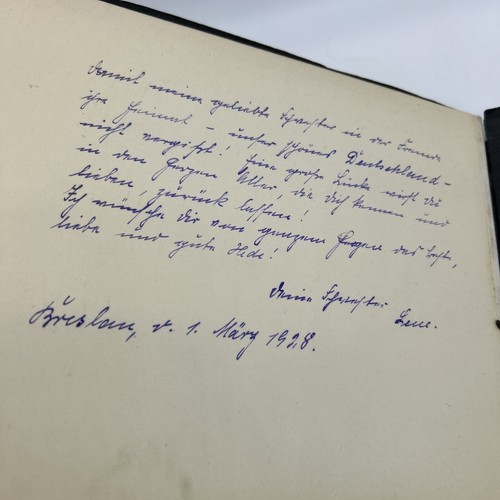 Damit meine geliebte Schwester in der Fremde
ihre Heimat - unser schönes Deutschland -
nicht vergißt! Eine große Lücke wirst du
in den Herzen Aller, die dich kennen und
lieben, zurück lassen!
Ich wünsche Dir von ganzem Herzen das Beste,
liebe und gute Hede!
Deine Schwester
Lene.
Breslau, d. 1. März 1928.